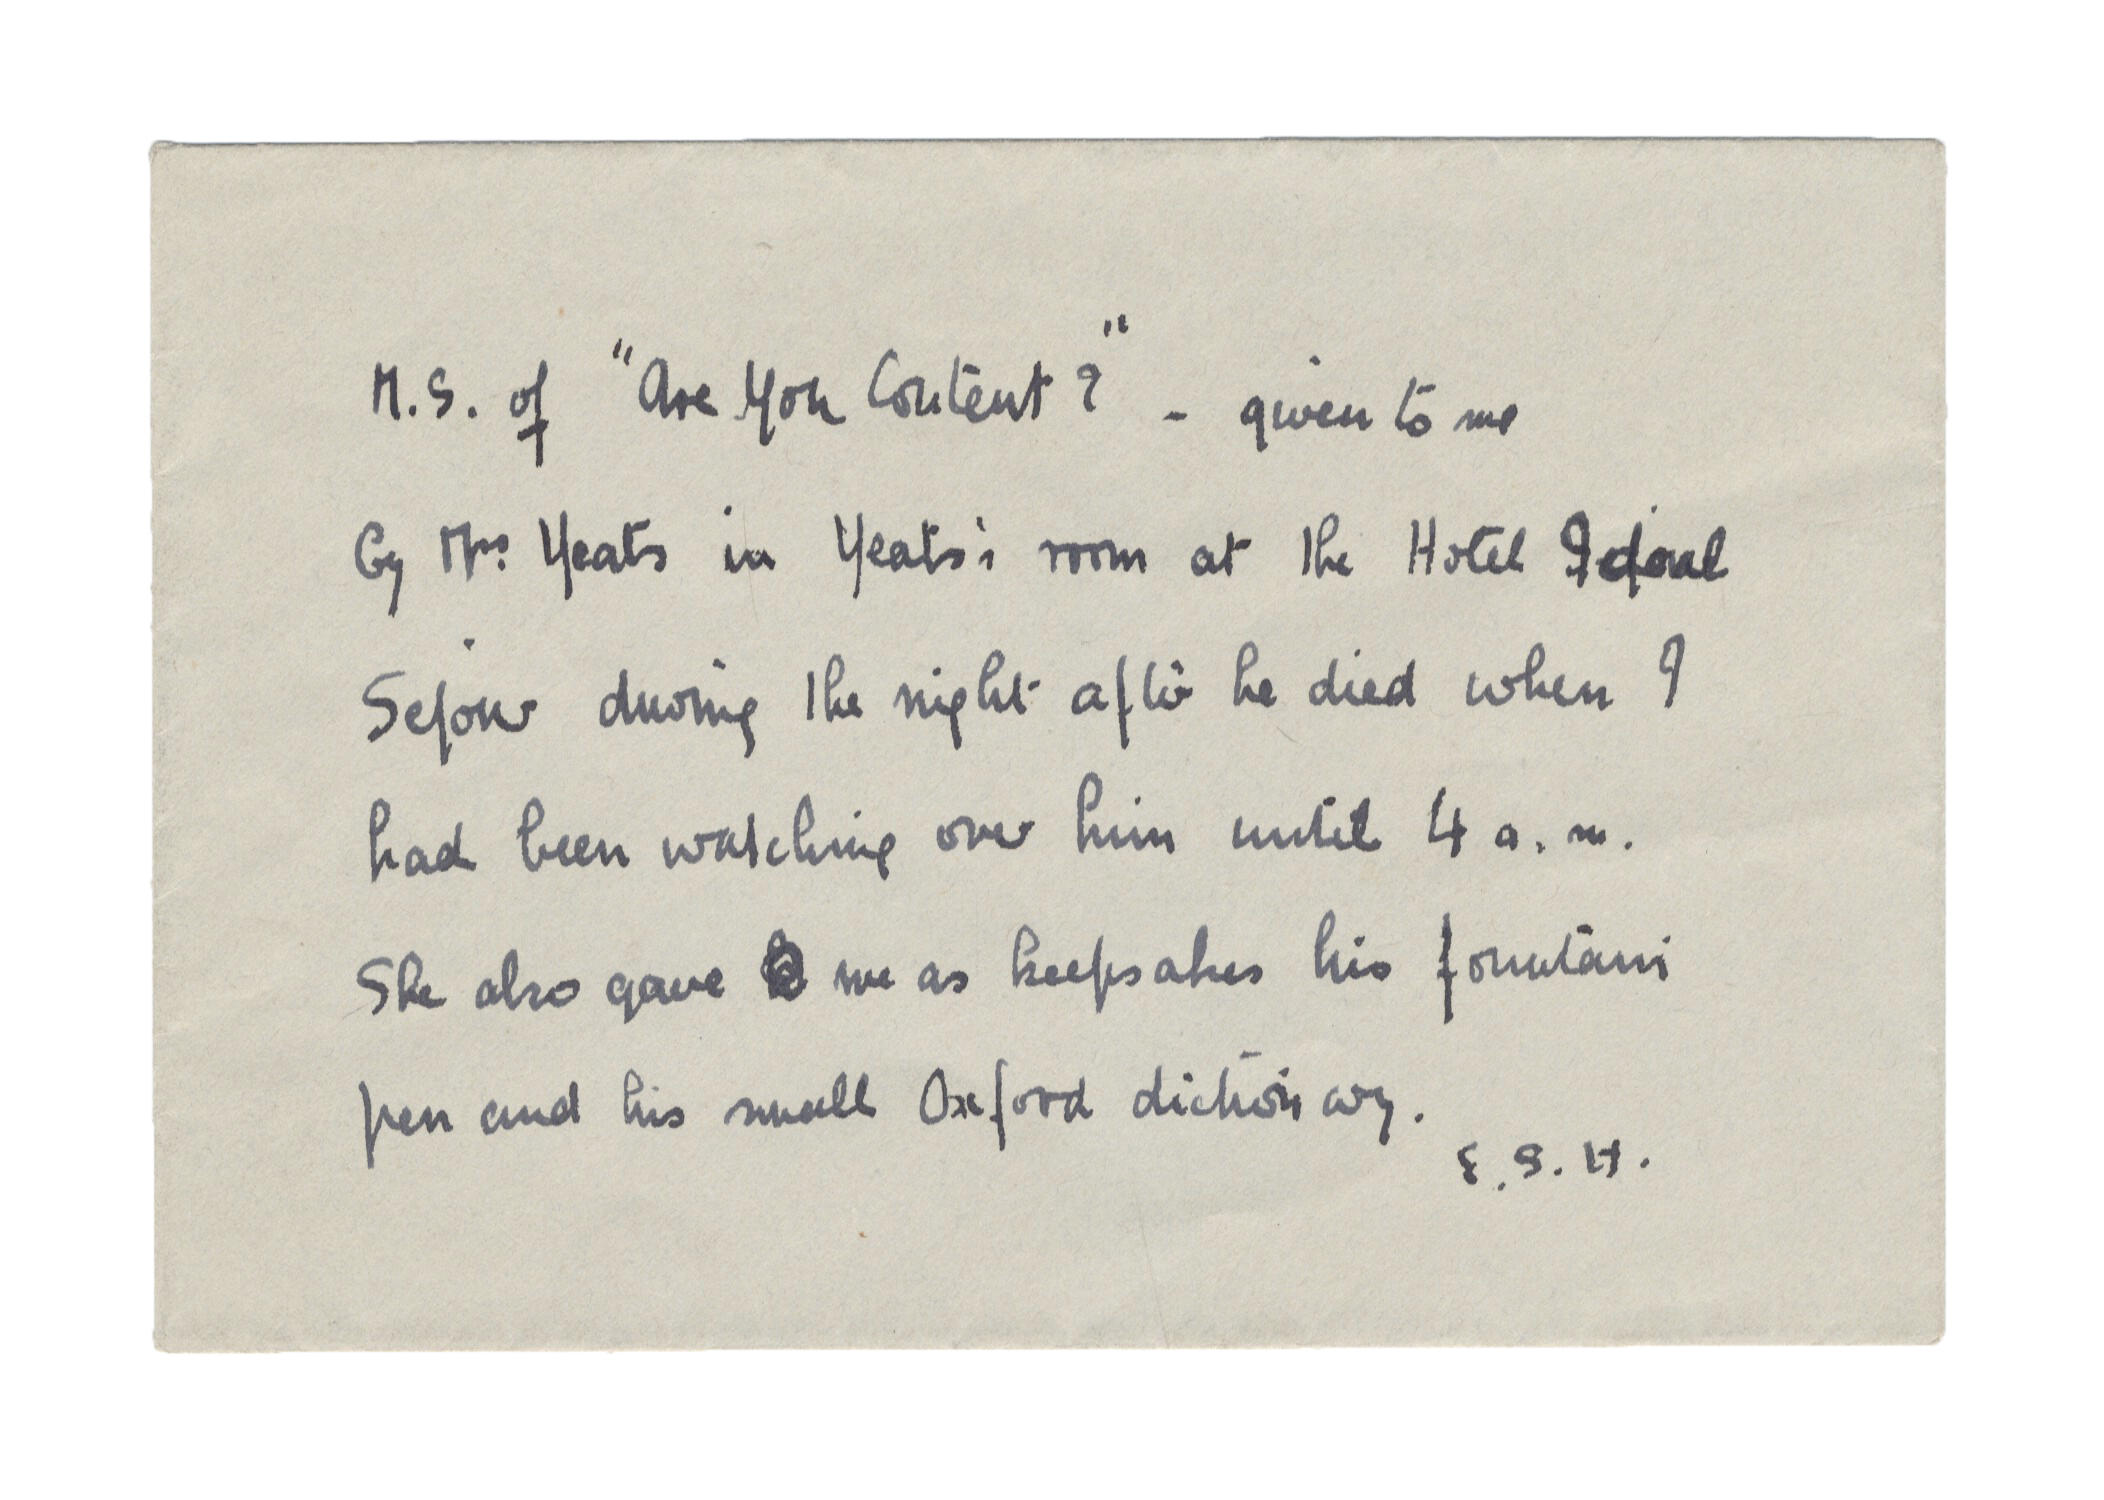 M.S. of "Are You Content?" - given to me
by Mrs Yeats in Yeats's room at the Hotel Idéal
Sejour during the night after he died when I
had been watching over him until 4 a.m.
She also gave me as keepsakes his fountain
pen and his small Oxford dictionary.
E.S.H.